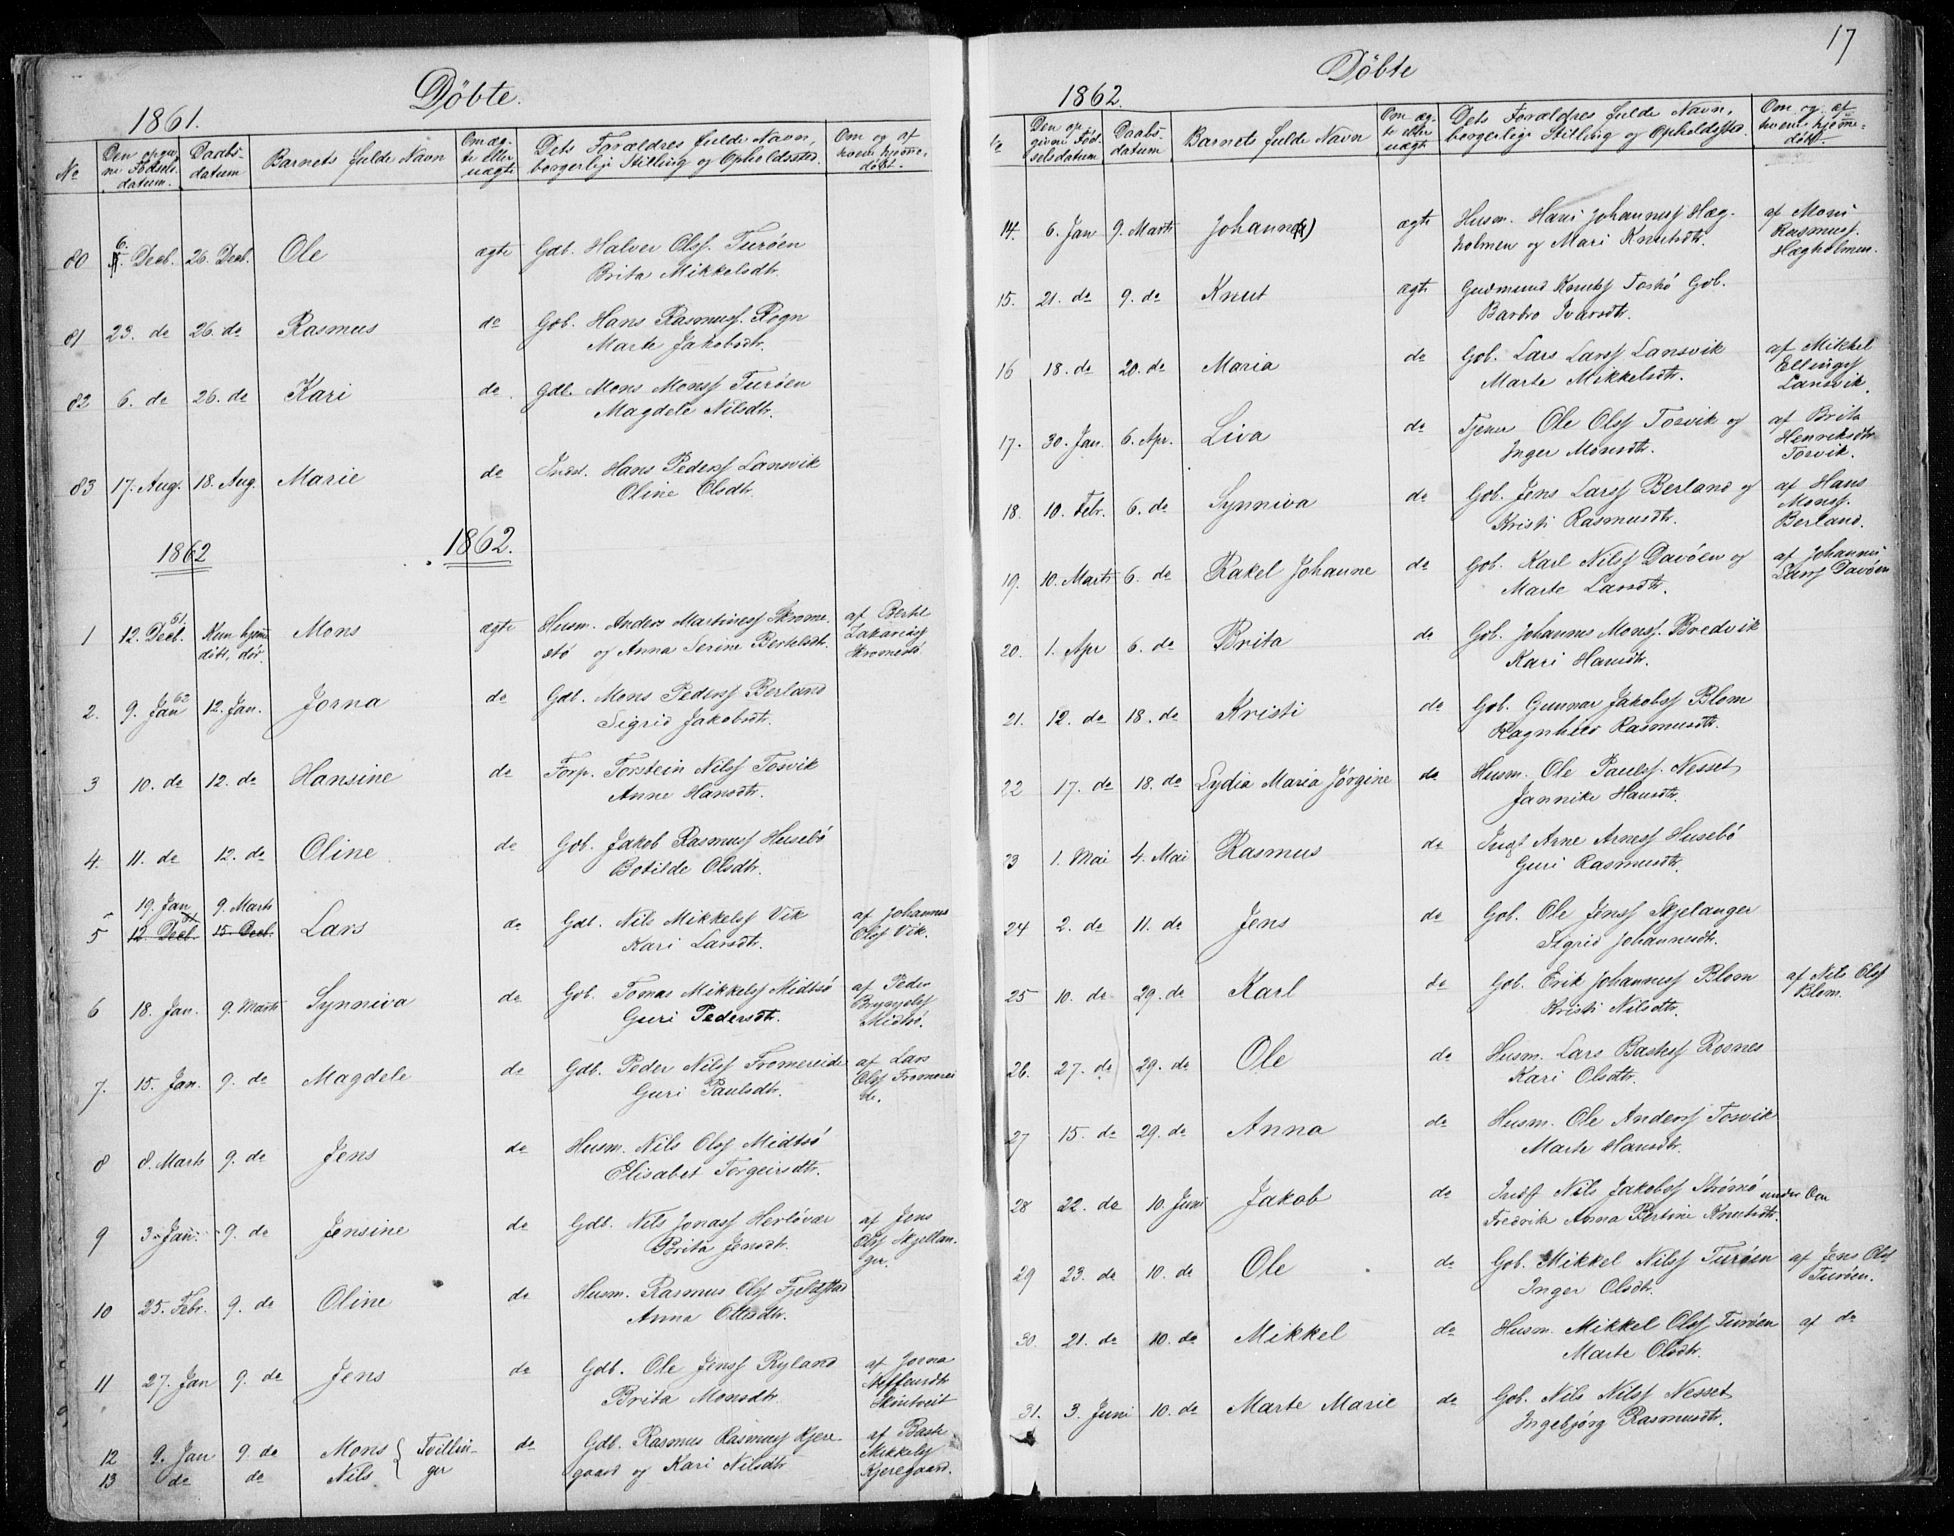 Döbte.
1861.
No
Den opgiv-
ne Födsels-
datum.
Daabs-
datum
Barnets fulde Navn
Om æg-
te eller
uægte
Dets Forældres fulde Navn,
borgerlige Stilling og Opholdssted.
Om og af
hvem hjemme-
döbt.
80 6. Decb. 26. Decb. Ole ægte Gdb. Halver Olsf. Turöen
Brita Mikkelsdtr.
81 23. do 26. do Rasmus do Gdb. Hans Rasmusf. Rogn
Marte Jakobsdtr.
82 6. do 26. do Kari do. Gdb. Mons Monsf Turöen
Magdele Nilsdtr.
83 17. Aug. 18. Aug. Marie do Inds. Hans Pedersf Lansvik
Oline Olsdtr.
1862 1862.
1 12. Decb. 61. Kun hjem
döbt, död. Mons ægte Husm. Anders Martinusf Skrome-
stö og Anna Serine Bertelsdtr. af Bertel
Zakariasf
Skromestö
2. 9. Jan 62 12. Jan. Jorna do Gdb. Mons Pedersf Berland
Sigrid Jakobsdtr.
3 10. do 12. do Hansine do Forp. Torstein Nilsf Tosvik
Anne Hansdtr.
4. 11. do 12. do Oline do Gdb. Jakob Rasmusf Husebö
Botilde Olsdtr.
5 19. Jan 9. Marts
12 Decb. 15. Decb. Lars do Gdb. Nils Mikkelsf Vik af Johannes
Kari Larsdtr. Olsf Vik.
6 18. Jan. 9. Marts Synniva do Gdb. Tomas Mikkelsf Midtsö af Peder
Guri Pedersdtr. Brynjelsf
Midtsö.
7. 15. Jan. 9. do Magdele do Gdb. Peder Nilsf Fromereide af Lars
Guri Paulsdtr. Olsf Fromerei
de.
8 8. Marts 9. do Jens do Husm. Nils Olsf Midtsö
Elisabet Torgeirsdtr.
9 3. Jan. 9. do Jensine do Gdb. Nils Jonasf Herlövær af Jens
Brita Jensdtr. Olsf Skjellan-
ger.
10 25. Febr. 9. do Oline do Husm. Rasmus Olsf Fjeldstad
Anna Ottesdtr.
11 27. Jan 9. do Jens do Gdb. Ole Jensf Ryland af Jorna
Brita Monsdtr. Steffensdtr
12 9. Jan 9. do Mons Tvillin- do Gdb. Rasmus Rasmusf Kjere- af Bast
13 do do Nils ger gaard og Kari Nilsdtr. Mikkelsf
Kjeregaard.
17
Döbte
1862.
No
Den op-
givne Föd-
selsdatum
Daabs-
datum
Barnets fulde Navn
Om æg-
te eller
uægte
Dets Forældres fulde Navn,
borgerlige Stilling og Opholdssted.
Om og af
hvem hjemme-
döbt.
14. 6. Jan 9. Marts Johann(e) ægte Husm. Hans Johannesf Hæg- af Mons
holmen og Mari Knutsdtr. Rasmusf.
Hægholmen.
15. 21. do 9. do Knut ægte Gudmund Knutsf Toskö Gdb.
Barbro Ivarsdtr.
16 18. do 20. do Maria do Gdb. Lars Larsf Lansvik af Mikkel
Marte Mikkelsdtr. Ellingsf
Lansvik.
17. 30. Jan. 6. Apr. Liva do Tjener Ole Olsf Tosvik og af Brita
Inger Monsdtr. Henriksdtr
Tosvik.
18. 10. Febr. 6. do Synniva do Gdb. Jens Larsf Berland og af Hans
Kristi Rasmusdtr. Monsf.
Berland.
19. 10. Marts 6. do Rakel Johanne do Gdb. Karl Nilsf Davöen og af Johannes
Marte Larsdtr. Larsf Davöen
20. 1. Apr 6. do Brita do Gdb. Johannes Monsf. Bredvik
Kari Hansdtr.
21. 12. do 18. do Kristi do Gdb. Gunnar Jakobsf Blom
Ragnhild Rasmusdtr.
22 17. do 18. do Lydia Maria Jörgine do Husm. Ole Paulsf. Nesset
Jannike Hansdtr.
23 1. Mai 4. Mai Rasmus do Indst Arne Arnesf Husebö
Guri Rasmusdtr.
24 2. do 11. do Jens do Gdb. Ole Jensf Skjelanger
Sigrid Johannesdtr.
25 10. do 29. do Karl do Gdb. Erik Johannesf Blom af Nils Olsf
Kristi Nilsdtr. Blom.
26. 27. do 29. do Ole do Husm. Lars Bastesf Rosnes
Kari Olsdtr.
27 15. do 29. do Anna do Husm. Ole Andersf Tosvik
Marte Hansdtr.
28 22. do 10. Juni Jakob do Indst Nils Jakobsf Strömö under Oen
Fredvik Anna Bertine Knutsdtr.
29 23. do 10. do Ole do Gdb. Mikkel Nilsf Turöen af Jens Olsf
Inger Olsdtr. Turöen.
30. 21. do 10. do Mikkel do Husm. Mikkel Olsf Turöen af do
Marte Olsdtr.
31. 3. Juni 10. do Marte Marie do Gdb. Nils Nilsf Nesset
Ingebjörg Rasmusdtr.